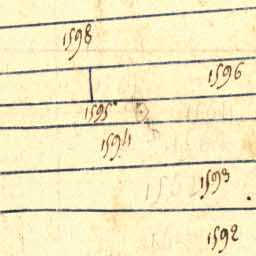 1598
1596
1595
1594
1593
1592